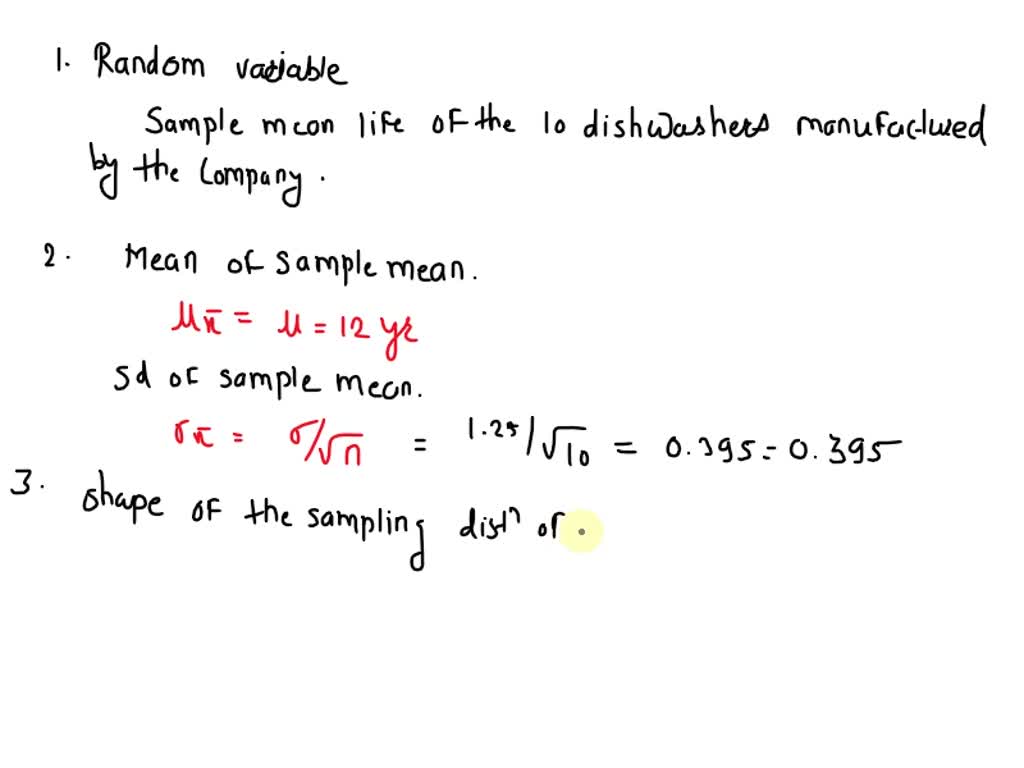 1. Random variable
Sample mean life of the 10 dishwashers manufactured
by the Company.
2. Mean of sample mean.
μx̄ = μ = 12 yr
Sd of sample mean.
σx̄ = σ/√n = 1.25/√10 = 0.395 = 0.395
3. Shape of the sampling distⁿ of